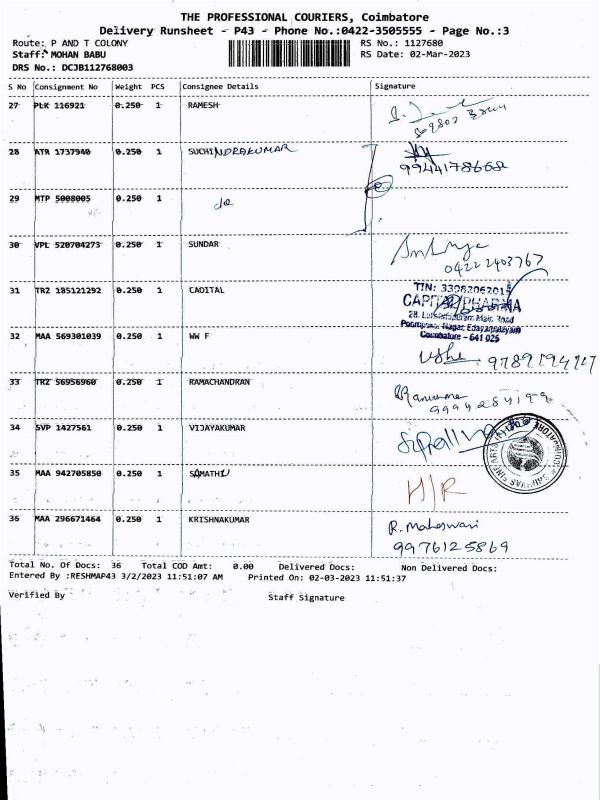 THE PROFESSIONAL COURIERS, Coimbatore
Delivery Runsheet - P43 - Phone No.:0422-3505555 - Page No.:3
Route: P AND T COLONY RS No.: 1127680
Staff: MOHAN BABU RS Date: 02-Mar-2023
DRS No.: DCJB112768003
S No Consignment No Weight PCS Consignee Details Signature
27 PLK 116921 0.250 1 RAMESH
28 ATR 1737940 0.250 1 SUCHINDRAKUMAR
9944178668
29 MTP 5008005 0.250 1 do
30 VPL 520704273 0.250 1 SUNDAR
04222403767
31 TRZ 185121292 0.250 1 CAOITAL
TIN: 33082062015
CAPITAL PHARMA
Coimbatore - 641 025
32 MAA 569301039 0.250 1 WW F
Usha
33 TRZ 56956960 0.250 1 RAMACHANDRAN
34 SVP 1427561 0.250 1 VIJAYAKUMAR
35 MAA 942705850 0.250 1 SUMATHI
H/R
36 MAA 296671464 0.250 1 KRISHNAKUMAR
R. Maheswari
9976125869
Total No. Of Docs: 36 Total COD Amt: 0.00 Delivered Docs: Non Delivered Docs:
Entered By :RESHMAP43 3/2/2023 11:51:07 AM Printed On: 02-03-2023 11:51:37
Verified By Staff Signature